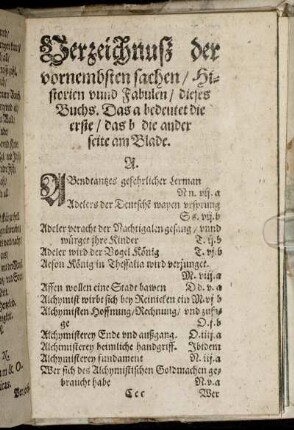 Verzeichnuß der
vornembsten sachen / Hi-
storien vnnd Fabulen / dieses
Buchs. Das a bedeutet die
erste / das b die ander
seite am Blade.
A.
ABendtantzes gefehrlicher Lerman
N n. vij. a
Adelers der Teutschē wapen vrsprung
S s. vij. b
Adeler veracht der Nachtigalen gesang / vnnd
würget jhre Kinder T. ij. b
Adeler wird der Vogel König T. vj. b
Aeson König in Thessalia wird verjunget.
M. viij. a
Affen wollen eine Stadt bawen D d. v. a
Alchymist wirbt sich bey Reinicken ein M. vj b
Alchymisten Hoffnung / Rechnung / vnd zufü-
ge O. j. b
Alchymisterey Ende vnd außgang. O. iiij. a
Alchymisterey heimliche handgriff. Ibidem
Alchymisterey fundament N. iij. a
Wer sich des Alchymistischen Goldmachen ge-
braucht habe N. v. a
C c c Wer